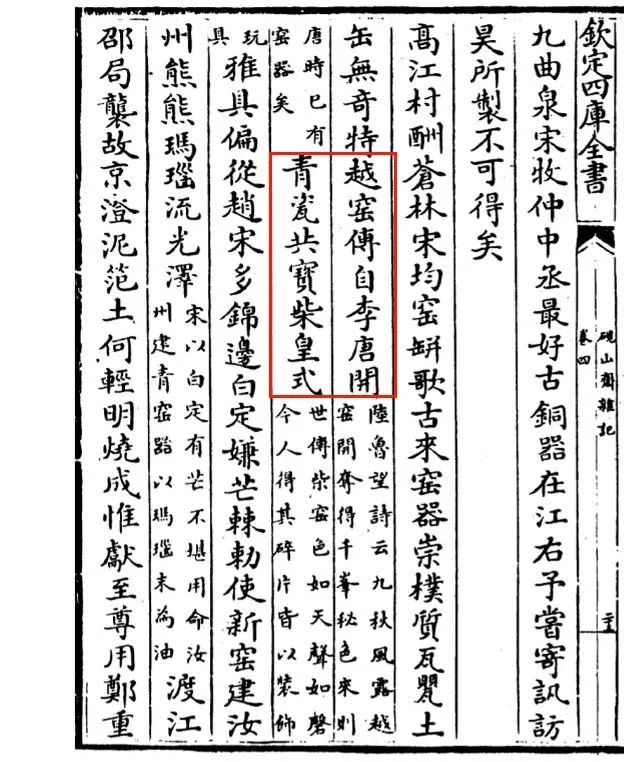 欽定四庫全書
硯山齋雜記
卷四
二十五
九曲泉宋牧仲中丞最好古銅器在江右予嘗寄訊訪
昊所製不可得矣
高江村酬蒼林宋均窑缾歌古來窑器崇樸質瓦甖土
缶無奇特越窑傳自李唐開陸魯望詩云九秋風露越窑開奪得千峯秘色來則
唐時已有窑器矣青瓷共寳柴皇式世傳柴窑色如天聲如磬今人得其碎片皆以装飾
玩具雅具偏從趙宋多錦邊白定嫌芒棘勅使新窑建汝
州熊熊瑪瑙流光澤宋以白定有芒不堪用命汝州建青窑器以瑪瑙末為油渡江
邵局襲故京澄泥范土何輕明燒成惟獻至尊用鄭重